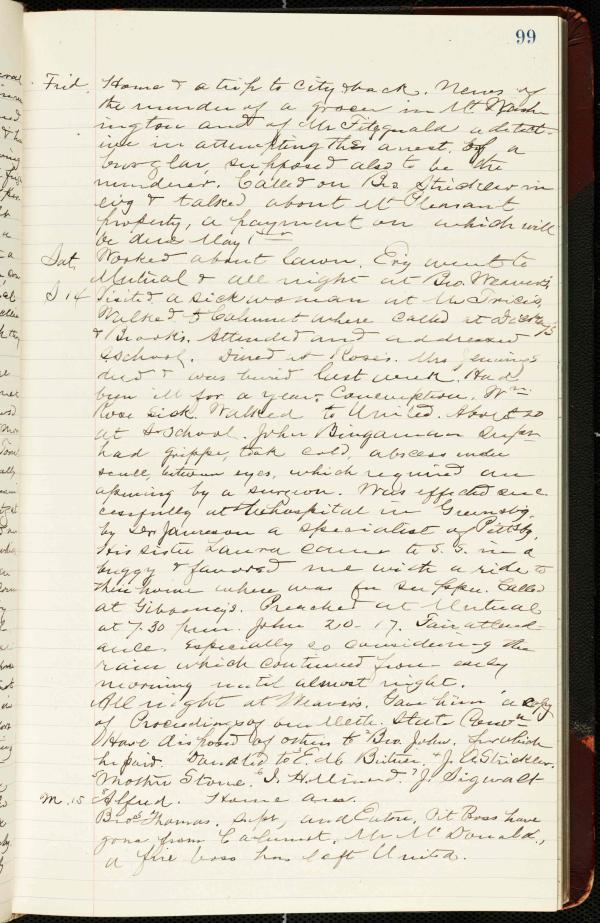 99
Frid. Home & a trip to City & back. News of
the murder of a grocer in Mt Wash
ington and of Mr Fitzgerald a detect-
ive in attempting the arrest of a
burglar, supposed also to be the
murderer. Called on Bro Strickler in
evg & talked about Mt Pleasant
property, a payment on which will
be due May 1st
Sat, Worked about lawn. Evg went to
Mutual & all night at Bro. Weaver's
S 14 Visited a sick woman at Mr Price's
Walked to Calumet where called at
& Brooks. Attended and addressed
S School. Dined at Rose's. Mrs Jennings
died & was buried last week. Had
been ill for a year, Consumption. Wm
Rose sick. Walked to United. About 20
at S-School. John Bingaman Supt
had grippe, took cold, abscess under
scull, between eyes, which required an
opening by a surgeon. Was effected suc
cessfully at the hospital in Greensbg,
by Dr Jameson a specialist of Pittsbg.
His sister Laura came to S. S. in a
buggy & favored me with a ride to
their home where was for supper. Called
at Gibboney's. Preached at Mutual
at 7.30 p.m. John 20-17. Fair attend-
ance. Especially so considering the
rain which continued from early
morning until almost night.
All night at Weavers. Gave him a copy
of Proceedings of our Meth. State Conv
Have disposed of others to Bro. John, for which
he paid. Donated to Ed Bitner, J. A Strickler,
Mother Stone, J. Hollinerd. J. Sigwalt
M. 15 Alfred. Home a.m.
Bros Thomas, Supt, and Eaton, Pit Boss have
gone from Calumet. Mr McDonald,
a fire boss has left United.